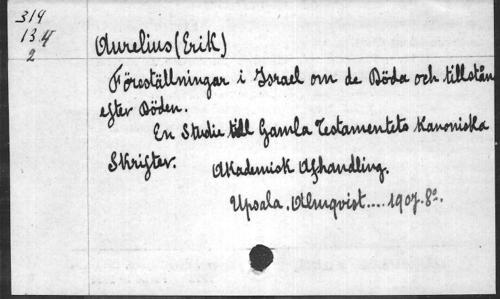 319
13.4
2
Aurelius (Erik)
Föreställningar i Israel om de Döda och tillstån
efter Döden.
En Studie till Gamla Testamentets Kanoniska
Skrifter. Akademisk Afhandling.
Upsala. Almqvist.... 1907. 8º.